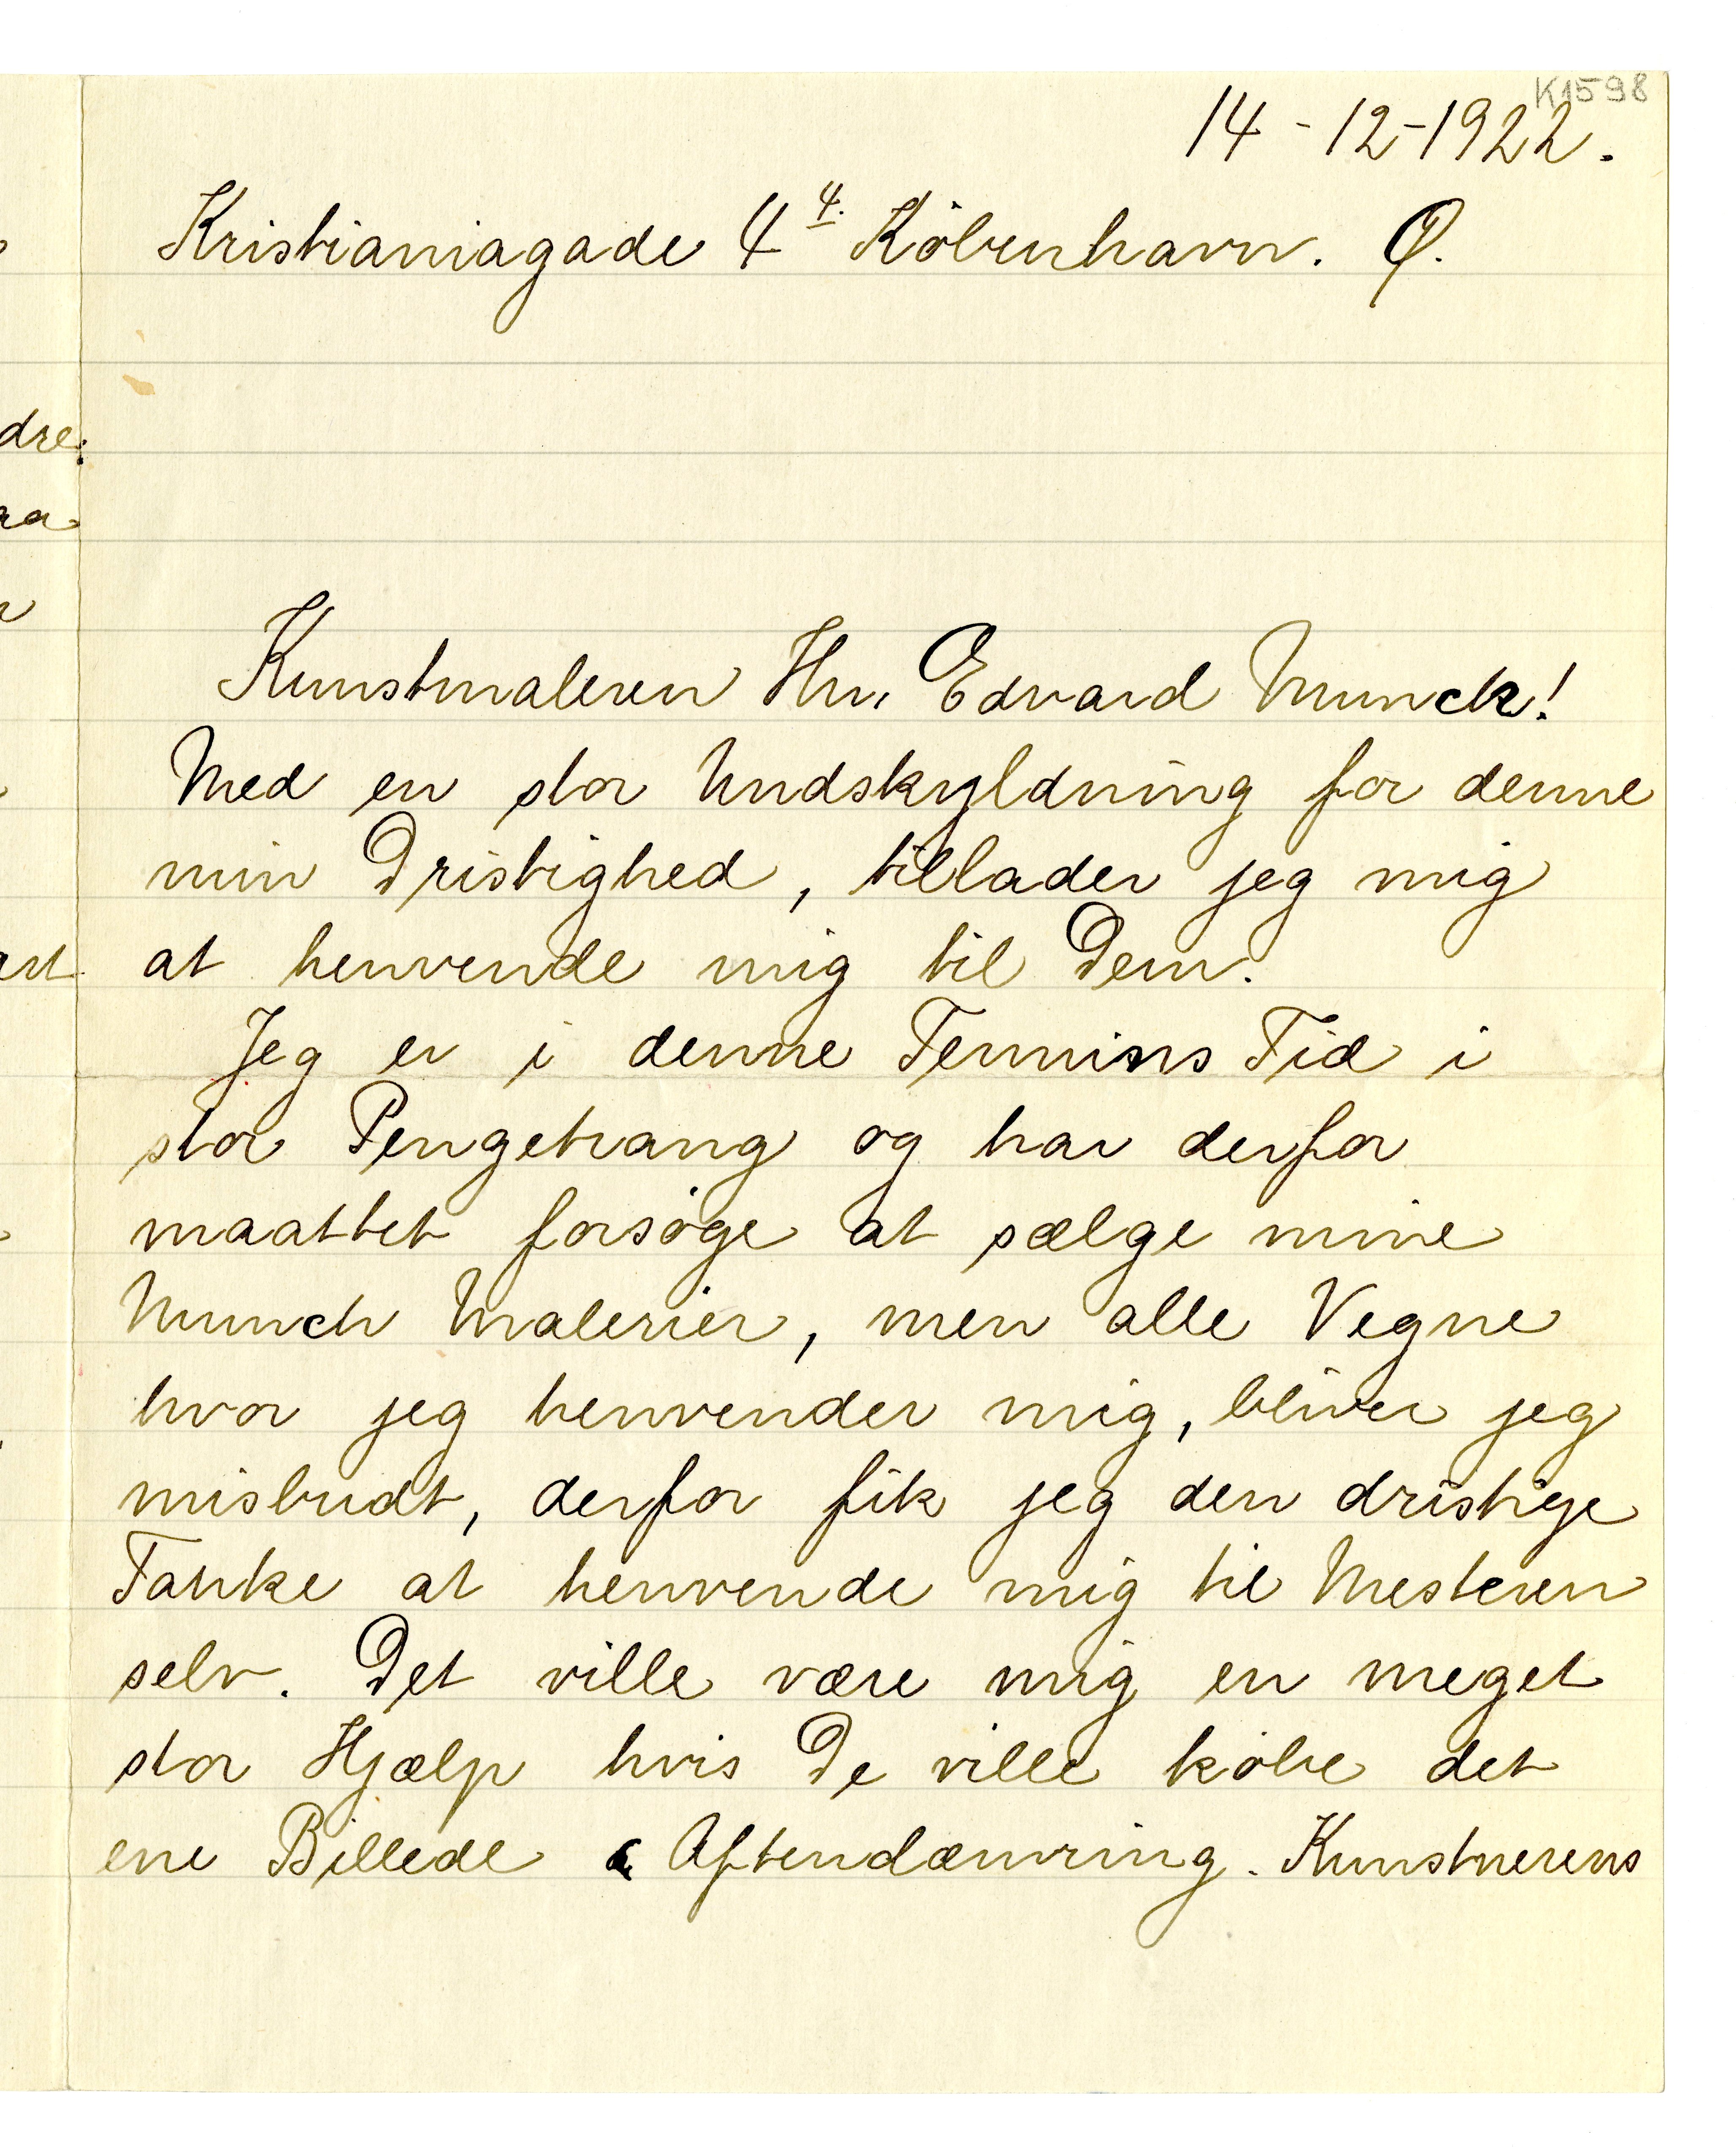 K1598
14 - 12 - 1922.
Kristianiagade 4 4. København. Ø.
Kunstmaleren Hr. Edvard Munck!
Med en stor Undskyldning for denne
min Dristighed, tillader jeg mig
at henvende mig til Dem.
Jeg er i denne Termins Tid i
stor Pengetrang og har derfor
maattet forsøge at sælge mine
Munch Malerier, men alle Vegne
hvor jeg henvender mig, bliver jeg
misbudt, derfor fik jeg den dristige
Tanke at henvende mig til Mesteren
selv. Det ville være mig en meget
stor Hjælp hvis De ville købe det
ene Billede Aftendæmring. Kunstnerens
dre.
ra